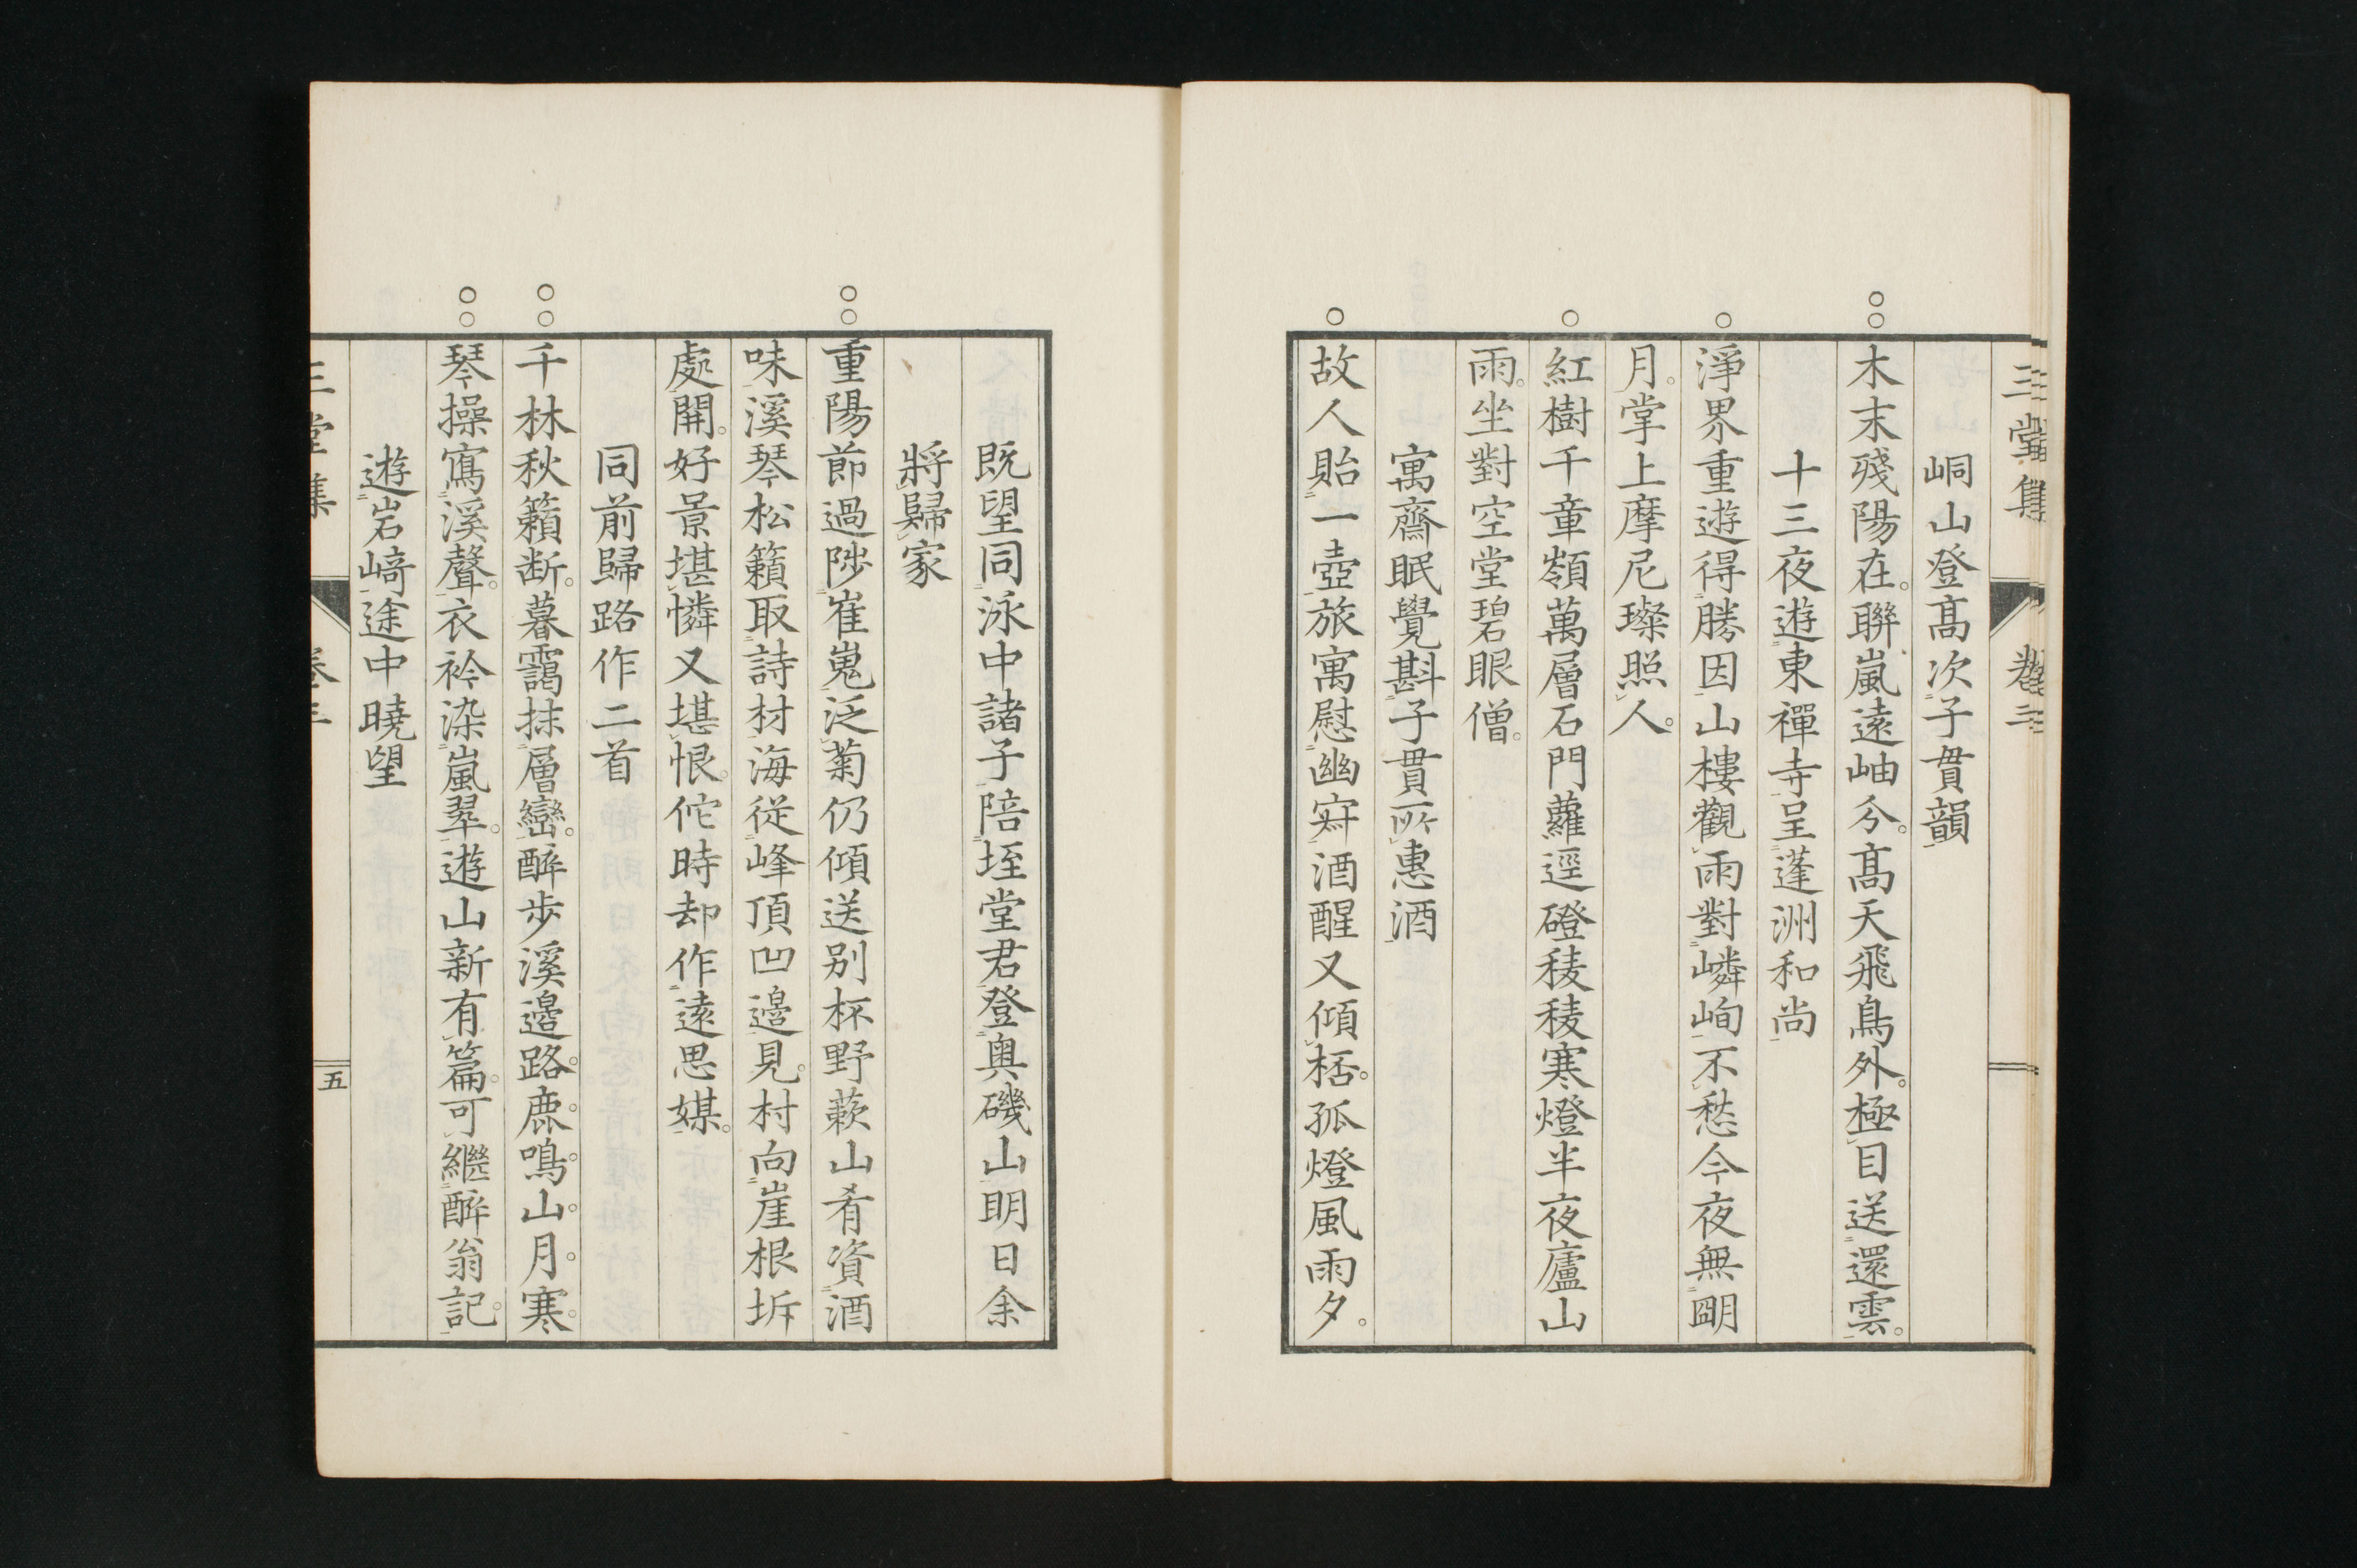 三堂集 卷三
峒山登髙次子貫韻
木末殘陽在。聯嵐遠岫分。髙天飛鳥外。極目送還雲。
十三夜遊東禪寺呈蓬洲和尚
淨界重遊得勝因山樓觀雨對嶙峋不愁今夜無朙
月。掌上摩尼璨照人。
紅樹千章嶺萬層石門蘿逕磴稜稜寒燈半夜廬山
雨。坐對空堂碧眼僧。
寓齋眠覺斟子貫所惠酒
故人貽一壺旅寓慰幽寂酒醒又傾桮。孤燈風雨夕。
既望同泳中諸子陪垤堂君登奥磯山明日余
將歸家
重陽節過陟崔嵬泛菊仍傾送别杯野蔌山肴資酒
味溪琴松籟取詩材海從峰頂凹邉見。村向崖根坼
處開。好景堪憐又堪恨。佗時却作遠思媒。
同前歸路作二首
千林秋籟断。暮靄抹層巒。醉步溪邉路。鹿鳴山月寒。
琴操寫溪聲。衣衿染嵐翠。遊山新有篇。可繼醉翁記。
遊岩﨑途中曉望
三堂集 卷三 五